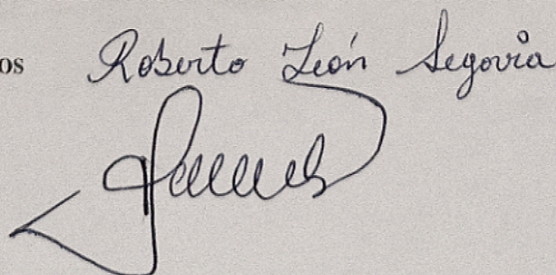 os Roberto León Segovia